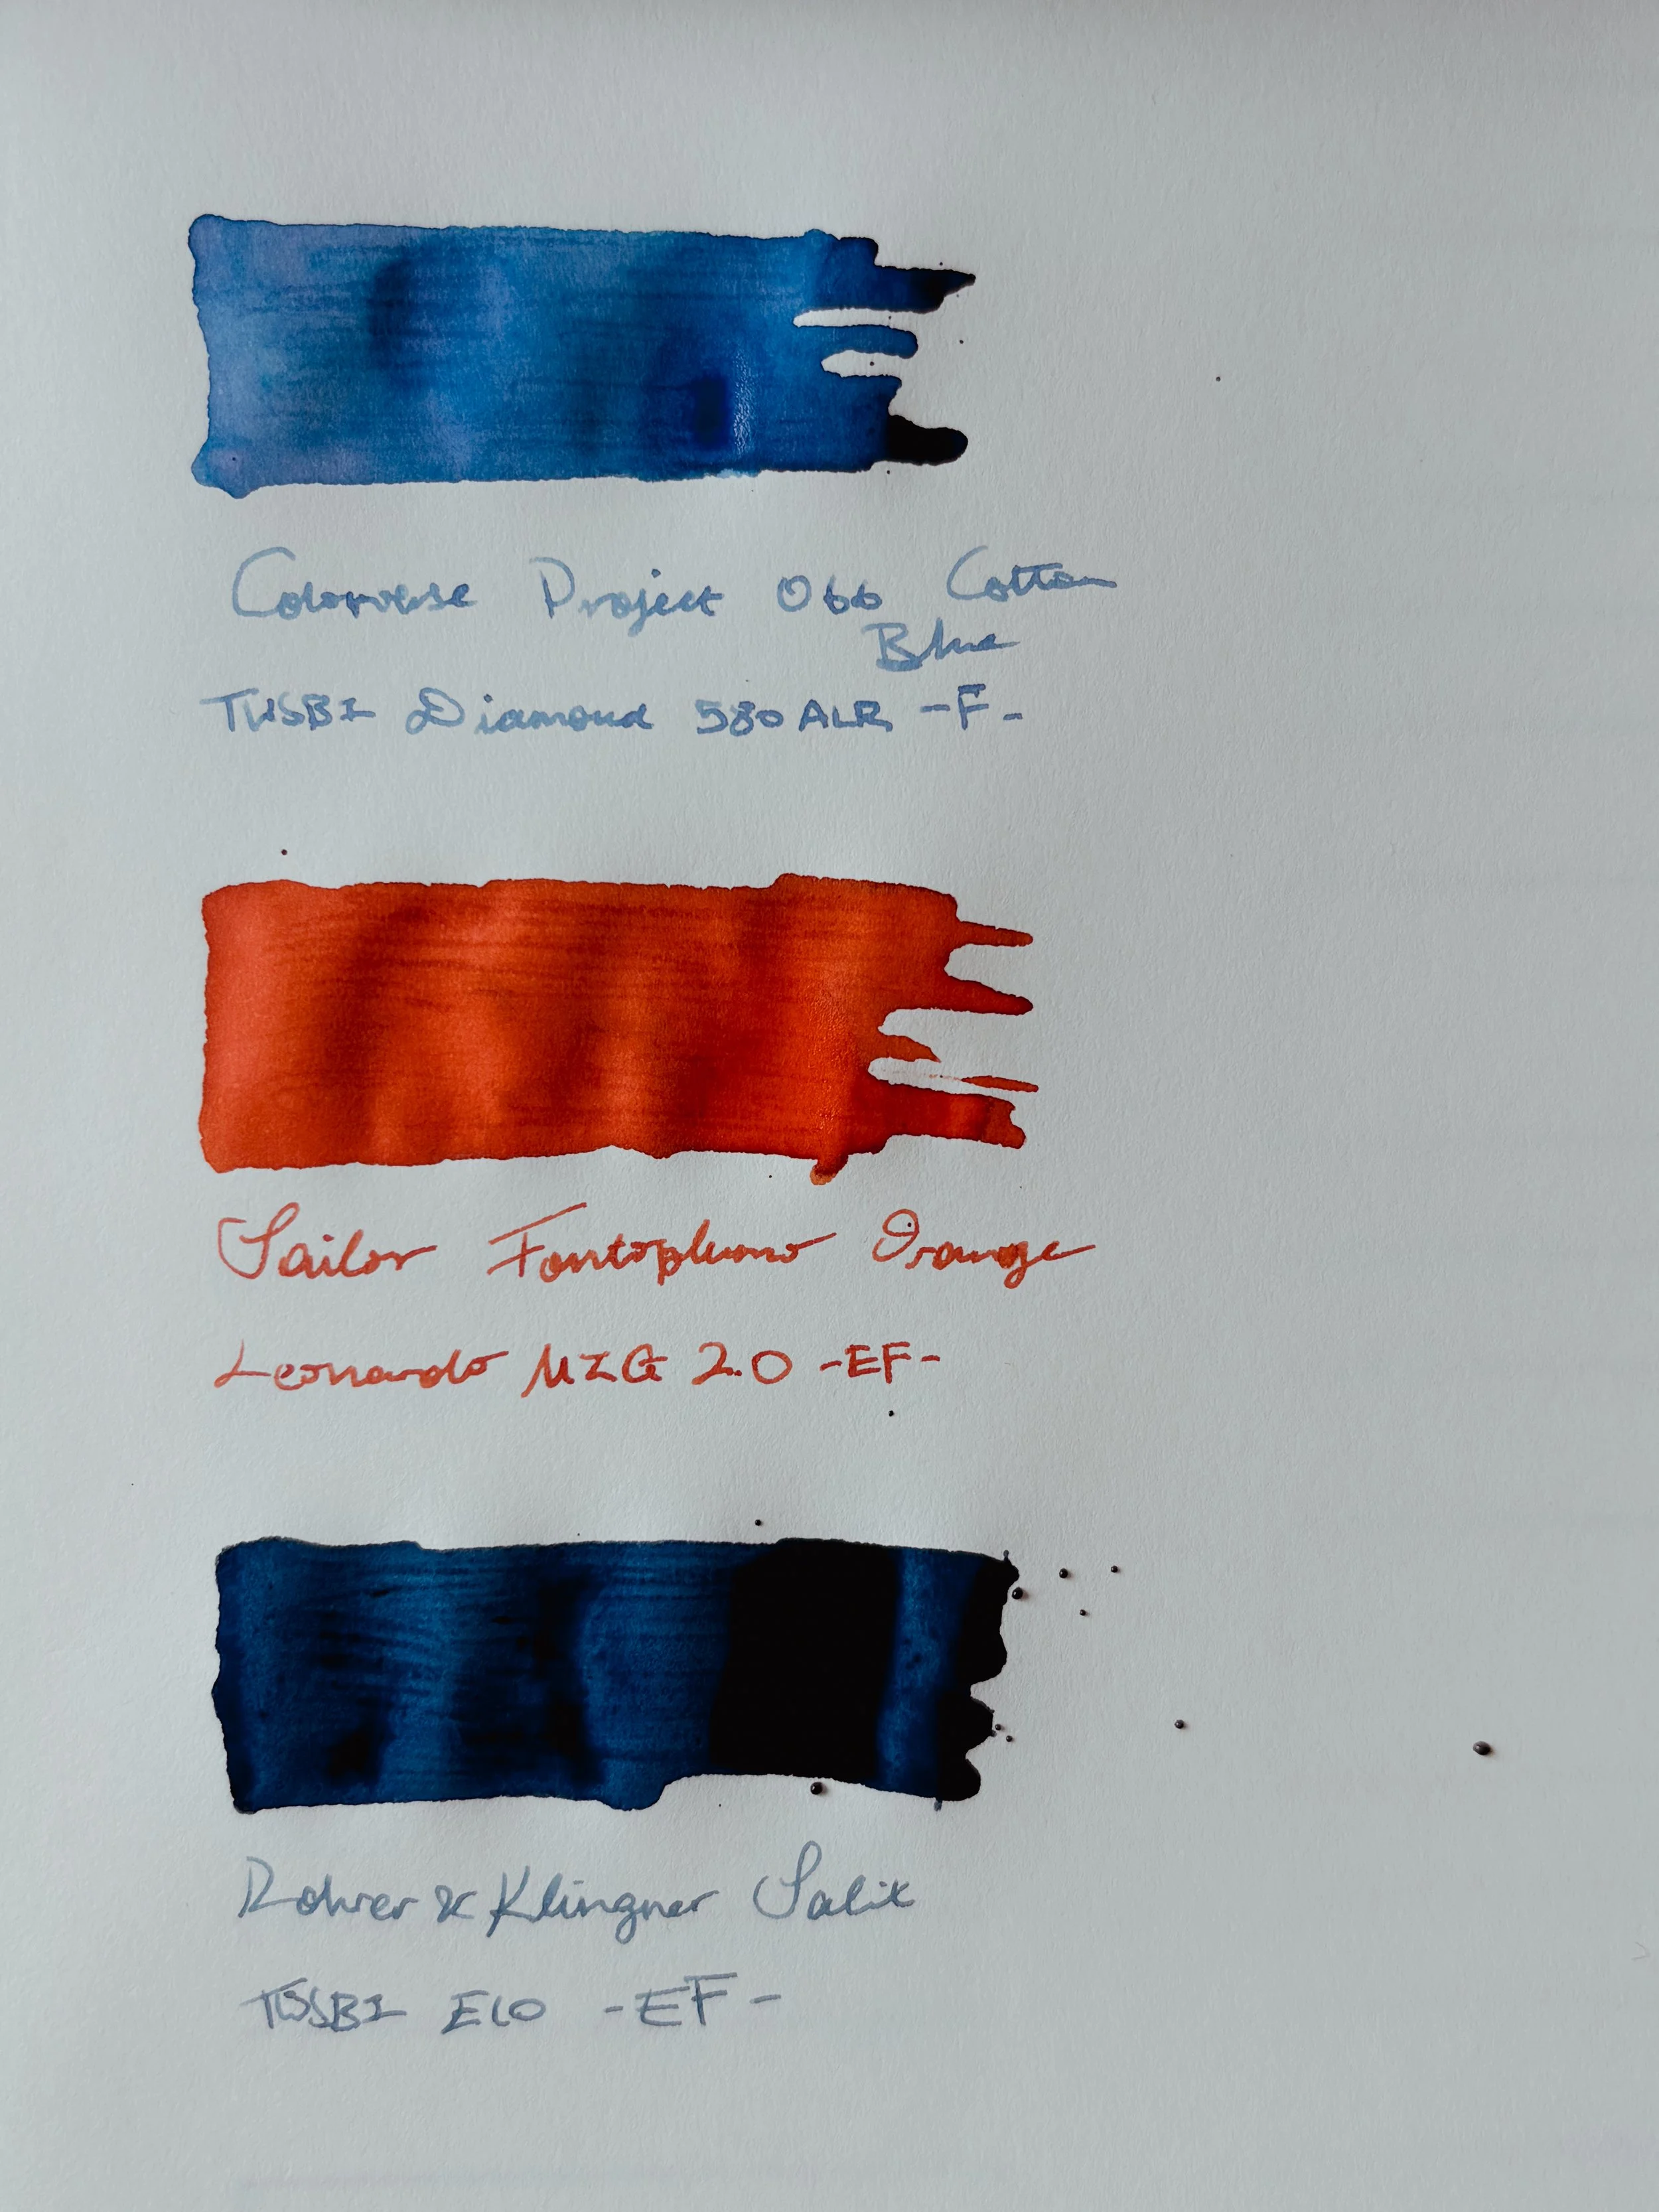 Colorverse Project 066 Cotton
Blue
TWSBI Diamond 580 ALR -F-
Sailor Fontoplumo Orange
Leonardo MZG 2.0 -EF-
Rohrer & Klingner Salix
TWSBI ECO -EF-